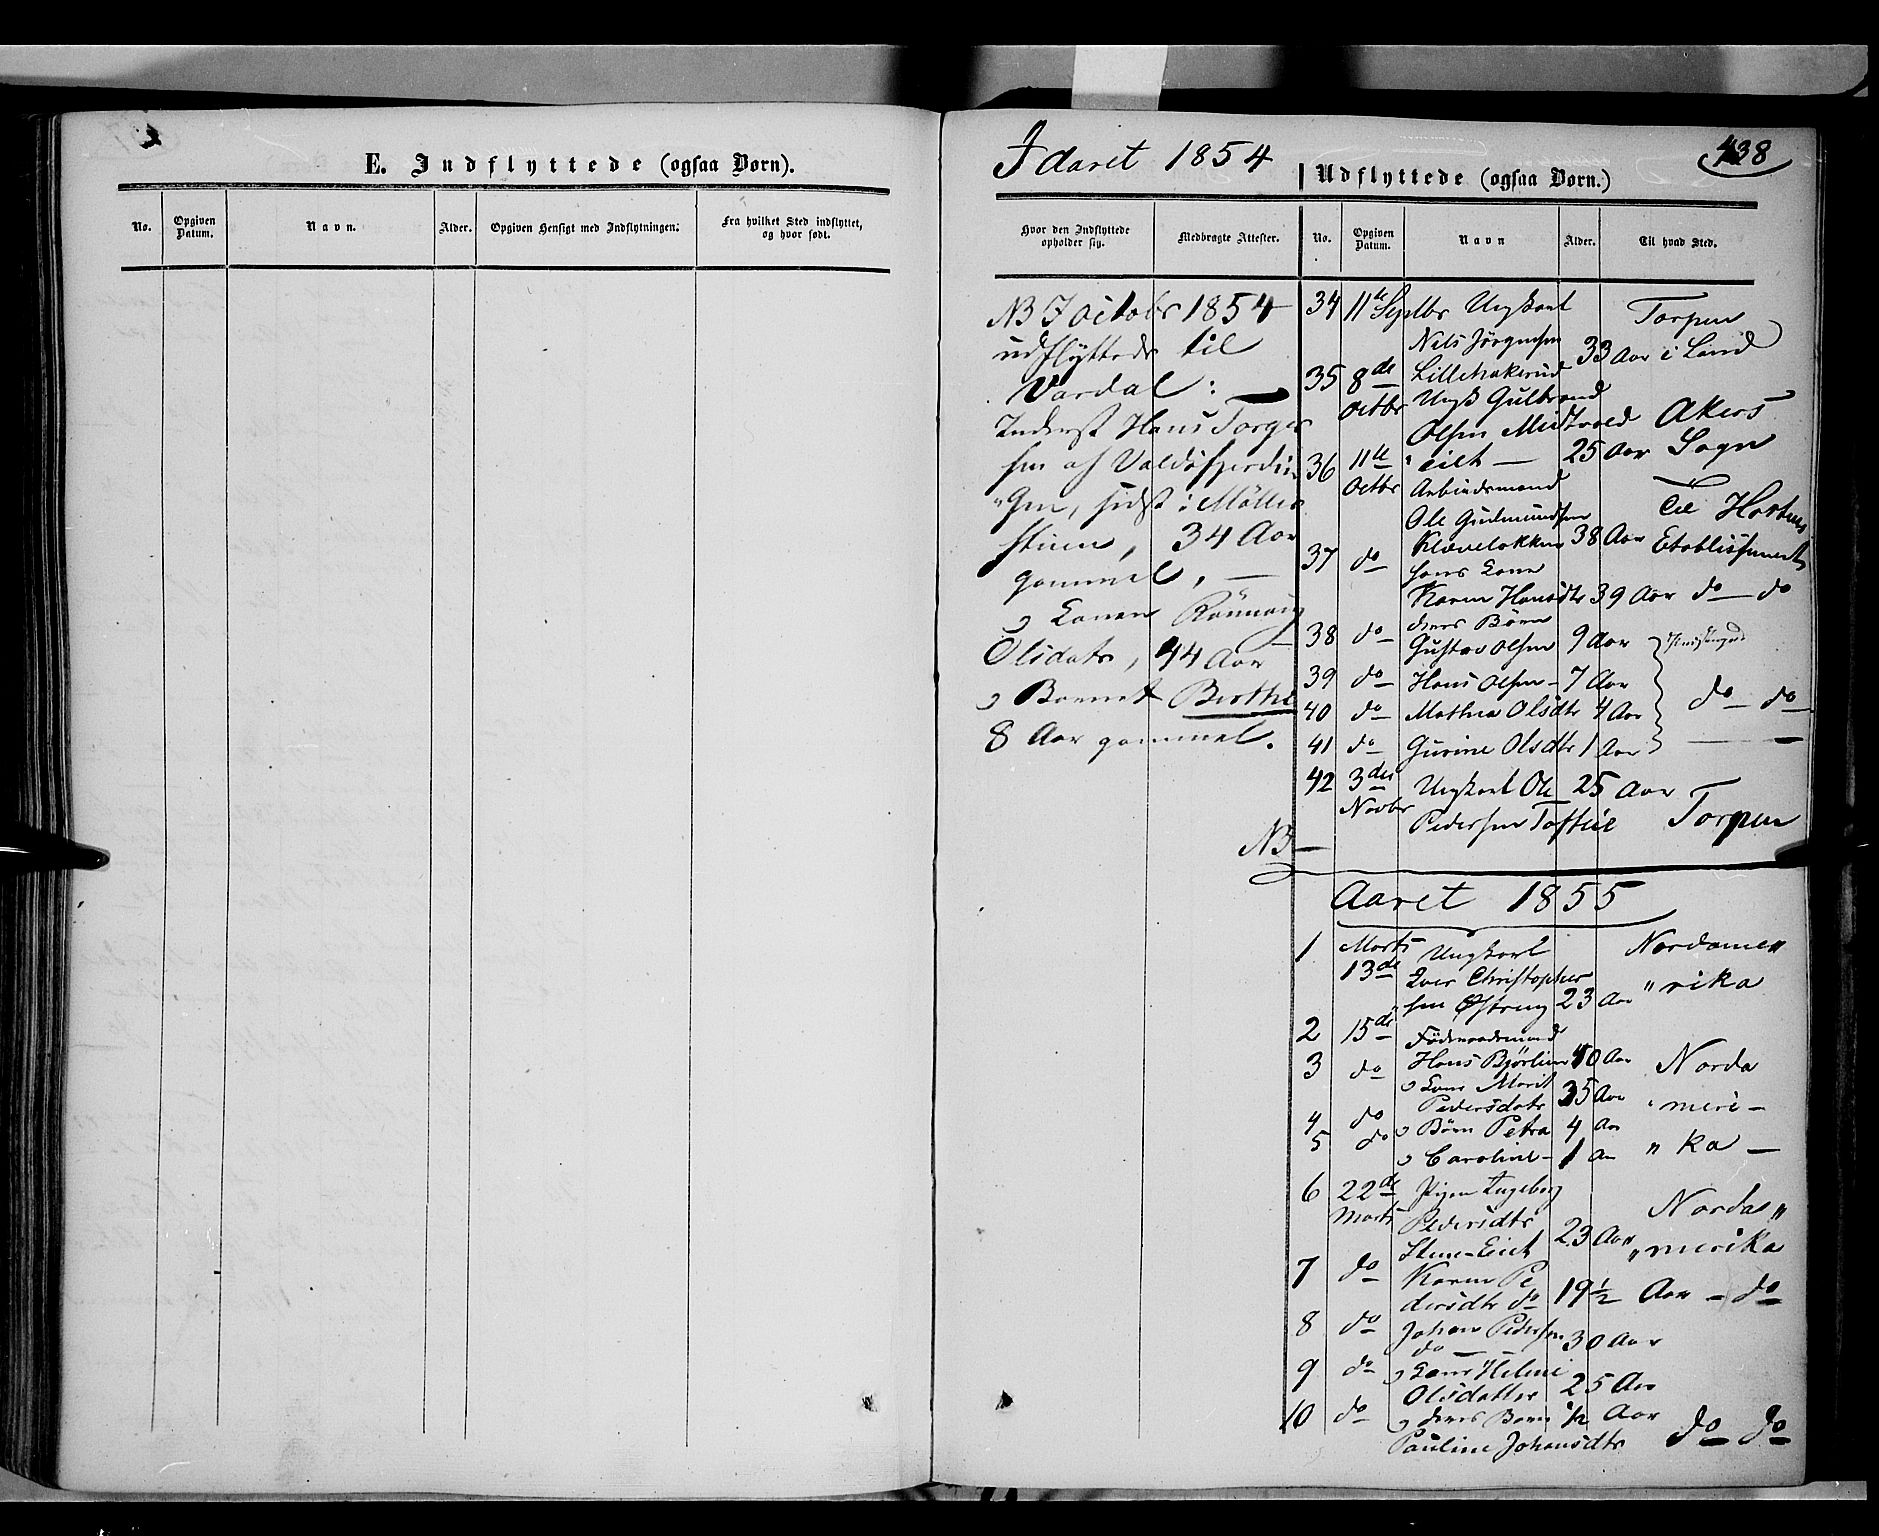 E. Indflyttede (ogsaa Børn).
No.
Opgiven Datum.
Navn.
Alder.
Opgiven Hensigt med Indflytningen.
Fra hvilket Sted indflyttet, og hvor født.
I daret 1854
438
Udflyttede (ogsaa Børn.)
Hvor den Indflyttede opholder sig.
Medbragte Attester.
No.
Opgiven Datum.
Navn
Alder.
Til hvad Sted.
NB I Octobr 1854
udflyttede til
Vardal: —
Inderst Hans Torger
sen af
"gen, sidst i Möller
stuen, 34 Aar
gammel, —
o Konen Rönnaug
Olsdatr, 44 Aar
o Barnet Berthe
8 Aar gammel.
34 11te Septbr Ungkarl Torpen
Nils Jörgensen
33 Aar i Land
35 8de Lillehakerud
Octbr Ungk Gulbrand
Olsen Akers
36 11te eiet — 25 Aar Sogn
Octbr Arbeidsmand
Ole Gudmundsen Til Hortens
Klævelökken 38 Aar Etablissement
37 do hans Kone
Karen Hansdtr 39 Aar do do
deres Börn
38 do Gustav Olsen 9 Aar
39 do Hans Olsen — 7 Aar
40 do Mathea Olsdtr 4 Aar do — do
41 do Gurine Olsdtr 1 Aar
42 3die Ungkarl Ole 25 Aar
Novbr Pedersen Torpen
NB —
Aaret 1855
1 Marts Ungkarl Nordame„
13de Iver Christopher
sen Østeng 23 Aar „rika
2 15de Föderaadsmand
3 do Hans Björlien 40 Aar Norda
o Kone Marit 35 Aar
Pedersdatr meri —
4 do o Börn Petra 4 Aar
5 do o Caroline — 1 Aar „ ka —
6 22de Pigen Ingeborg Nordas„
Marts Pedersdtr
Stene-Eiet 23 Aar „merika
7 do Karen Pe
dersdtr do 19 1/2 Aar — do
8 do Johan Pedersen
do — 30 Aar
9 do o Kone Helene
Olsdatter 25 Aar
10 do o deres Barn 1/2 Aar
Pauline Johansdtr do do